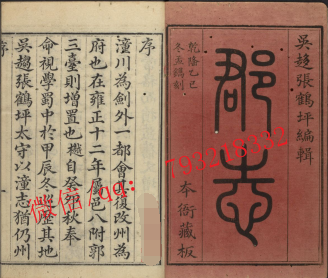 吳趨張鶴坪編輯
郡志
乾隆乙巳
本衙藏板
序
潼川為劍外一都會其復改州為
府也在雍正十二年屬邑八附郭
三臺則增置也樾自癸卯秋奉
命視學蜀中於甲辰冬歷其地
吳趨張鶴坪太守以潼志猶仍州
序
微信:793218332